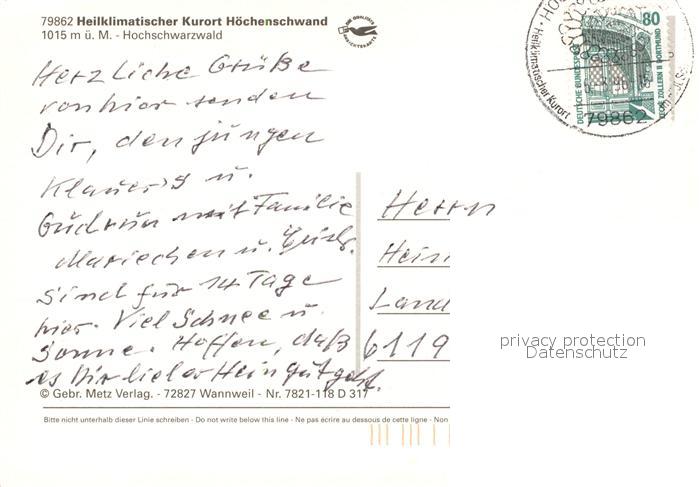 79862 Heilklimatischer Kurort Höchenschwand
1015 m ü. M. - Hochschwarzwald
Herzliche Grüße
von hier senden
Dir, den jungen
Klauer's u.
Gudrun mit Familie
Mariechen u.
Sind für 14 Tage
hier. Viel Schnee u.
Sonne. Hoffen, daß
es Dir lieber Hein gut geht.
© Gebr. Metz Verlag. - 72827 Wannweil - Nr. 7821-118 D 317
Bitte nicht unterhalb dieser Linie schreiben - Do not write below this line - Ne pas écrire au dessous de cette ligne - Non
Herrn
Hein
Land
6119
privacy protection
Datenschutz
80
DEUTSCHE BUNDESPOST
ZECHE ZOLLERN II DORTMUND
Heilklimatischer Kurort
79862